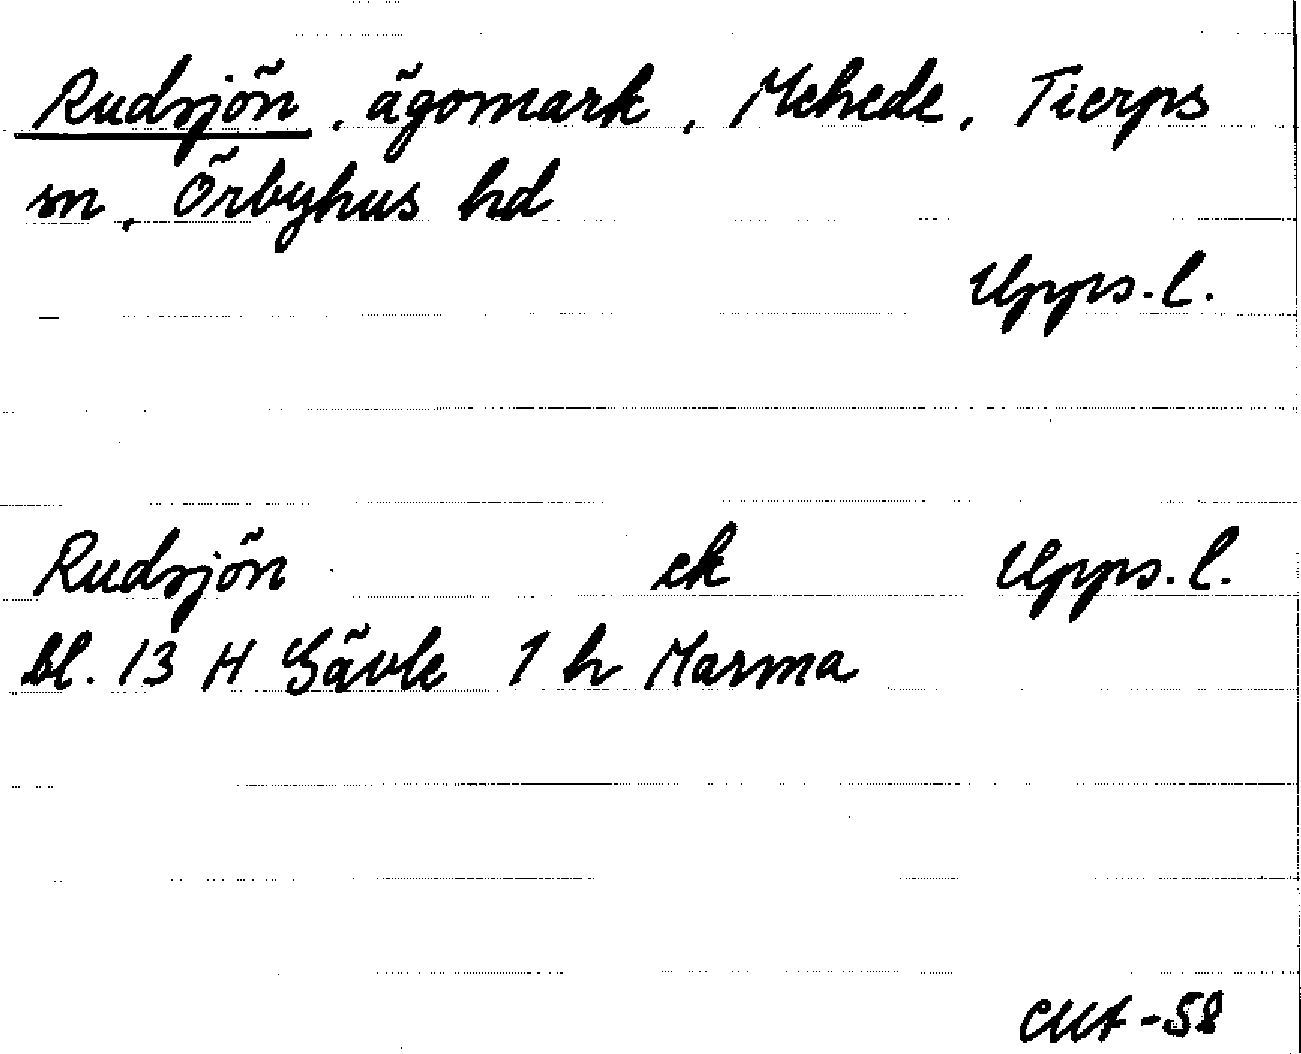 Rudsjön, ägomark, Mehede, Tierps
sn, Örbyhus hd
Upps.l.
Rudsjön ek Upps.l.
bl. 13 H Gävle 1 h Marma
CMA-58